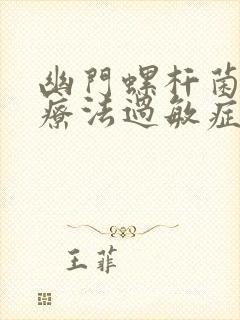 幽門螺杆菌
療法過敏症
王菲